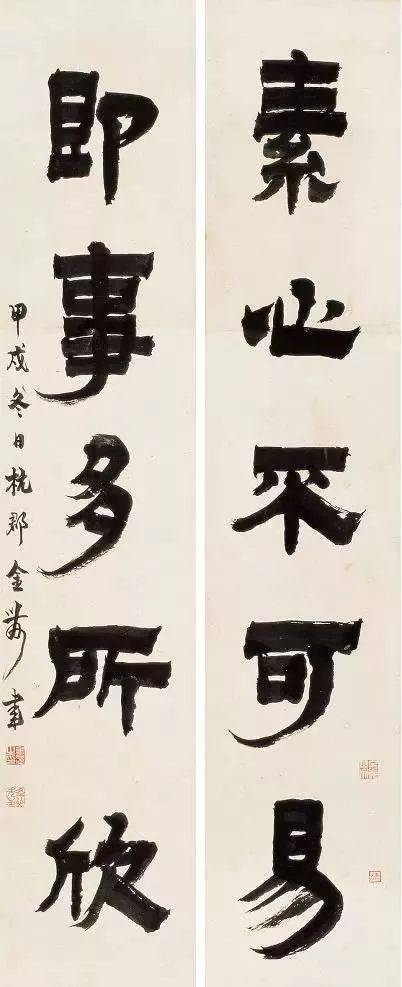 素心不可易
即事多所欣
甲戌冬日杭郡金農書